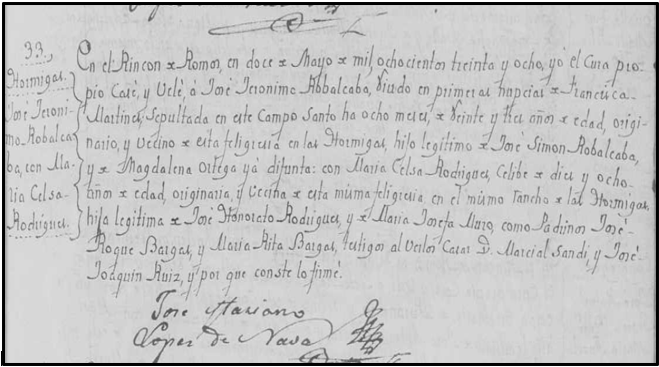 33.
Hormigas.
José Jeroni-
mo Robalca
ba, con Ma-
ria Celsa
Rodriguez.
En el Rincon x Ramos, en doce x Mayo x mil, ochocientos treinta y ocho, yo el Cura pro-
pio Casé, y Velé, á José Jeronimo Robalcaba, Viudo en primeras nupcias x Francisca
Martinez, sepultada en este Campo Santo ha ocho meses, x Veinte y tres años x edad, origi-
nario, y Vecino x esta feligresia en las Hormigas, hijo legitimo x José Simon Robalcaba,
y x Magdalena Ortega yá difunta: con Maria Celsa Rodriguez, Celibe x diez y ocho
años x edad, originaria, y Vecina x esta misma feligresia, en el mismo rancho x las Hormigas,
hija legitima x José Honorato Rodriguez, y x Maria Josefa Muro, como Padrinos José
Roque Bargas, y Maria Rita Bargas, testigos al Verlos Casar D. Marcial Sandi, y José
Joaquin Ruiz, y por que conste lo firmé.
José Mariano
Lopez de Nava